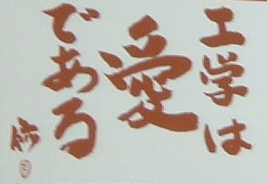 工学は
愛
である